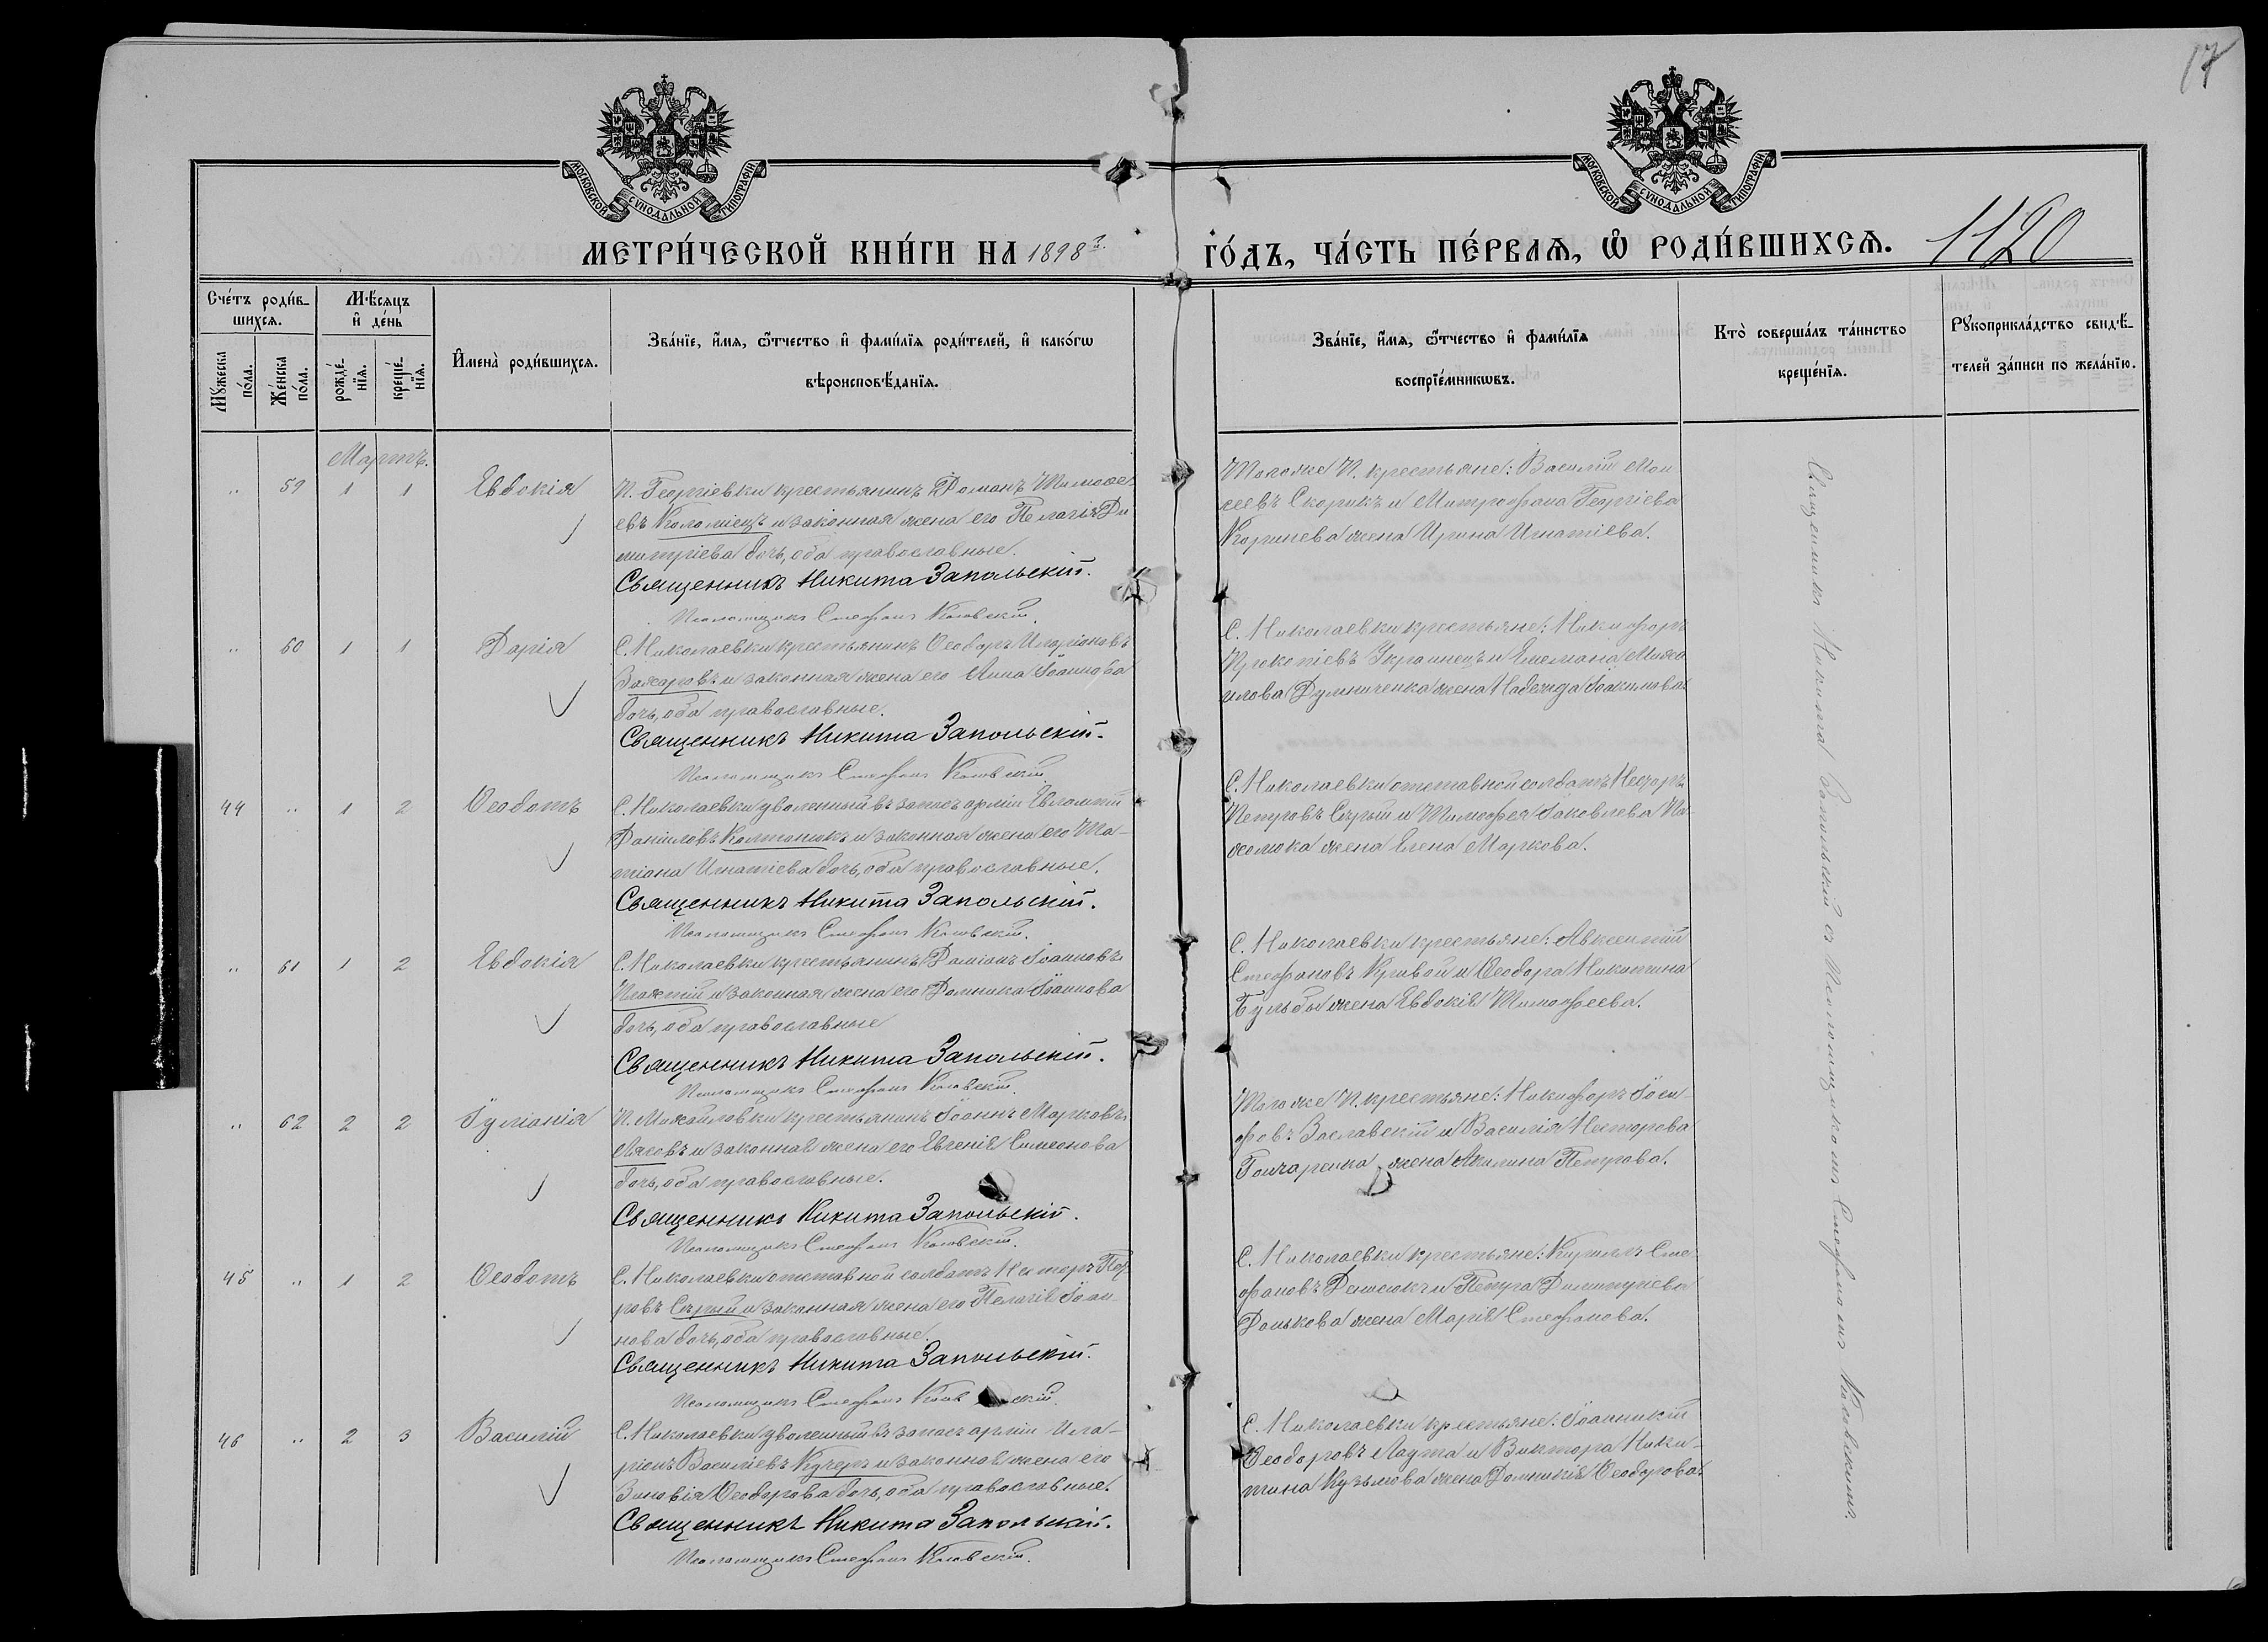 17
МОСКОВСКОЙ СѴНОДАЛЬНОЙ ТИПОГРАФІИ
МОСКОВСКОЙ СѴНОДАЛЬНОЙ ТИПОГРАФІИ
МЕТРИ́ЧЕСКОЙ КНИ́ГИ НА 1898 г.
ГО́ДЪ, ЧА́СТЬ ПЕ́РВАѦ, Ѡ҆ РОДИ́ВШИХСѦ. 1120
Сче́тъ роди́в-
шихсѧ.
Мꙋ́жеска
по́ла.
Же́нска
по́ла.
Мѣ́сѧцъ
и҆ де́нь
рожде́-
нїѧ.
креще́-
нїѧ.
И҆мена̀ роди́вшихсѧ.
Зва́нїе, и҆́мѧ, ѻ҆́тчество и҆ фами́лїѧ роди́телей, и҆ како́гѡ
вѣроисповѣ́данїѧ.
Зва́нїе, и҆́мѧ, ѻ҆́тчество и҆ фами́лїѧ
воспрїе́мникѡвъ.
Кто̀ соверша́лъ та́инство
креще́нїѧ.
Рꙋкоприкла́дство свидѣ́-
телей за́писи по жела́нїю.
Мартъ.
" 59 1 1 Евдокія
П. Георгіевки крестьянинъ Романъ Тимоѳе-
евъ Коломіецъ и законная жена его Пелагія Ди
митріева дочь, оба православные.
Священникъ Никита Запольскій.
Псаломщикъ Стефанъ
Тогоже П. крестьяне: Василій Мои
сеевъ Скорикъ и Митрофана Георгіева
Коринева жена Ирина Игнатіева.
" 60 1 1 Дарія
С. Николаевки крестьянинъ Ѳеодоръ Иларіоновъ
Захаровъ и законная жена его Анна Іоаннова
дочь, оба православные.
Священникъ Никита Запольскій.
Псаломщикъ Стефанъ
С. Николаевки крестьяне: Никифоръ
Прокопіевъ Украинецъ и Емеліана Миха
илова Думниченка жена Надежда Іоакимова
44 " 1 2 Ѳеодотъ
С. Николаевки уволенный въ запасъ арміи Евлампій
Даниловъ Колтонюкъ и законная жена его Та-
тіана Игнатіева дочь, оба православные.
Священникъ Никита Запольскій.
Псаломщикъ Стефанъ
С. Николаевки отставной солдатъ Несторъ
Петровъ Сѣрый и Тимофея Іаковлева Па
холюка жена Елена Маркова.
" 61 1 2 Евдокія
С. Николаевки крестьянинъ Даміанъ Іоанновъ
и законная жена его Домника Іоаннова
дочь, оба православные
Священникъ Никита Запольскій.
Псаломщикъ Стефанъ
С. Николаевки крестьяне: Авксентій
Стефановъ Кривой и Ѳеодора Никитина
Бульбы жена Евдокія Тимофеева.
" 62 2 2 Іуліанія
П. Михайловки крестьянинъ Іоаннъ Марковъ
Ляховъ и законная жена его Евгенія Симеонова
дочь, оба православные.
Священникъ Никита Запольскій.
Псаломщикъ Стефанъ
Тогоже П. крестьяне: Никифоръ Іоси-
фовъ Заславскій и Василія Несторова
Гончаренка жена Акилина Петрова.
45 " 1 2 Ѳеодотъ
С. Николаевки отставной солдатъ Несторъ Пет
ровъ Сѣрый и законная жена его Пелагія Іоан-
нова дочь, оба православные.
Священникъ Никита Запольскій.
Псаломщикъ Стефанъ
С. Николаевки крестьяне: Кириллъ Сте
фановъ Денисюкъ и Петра Димитріева
Донькова жена Марія Стефанова.
46 " 2 3 Василій
С. Николаевки уволенный въ запасъ арміи Ила-
ріонъ Василіевъ Кучеръ и законная жена его
Зиновія Ѳеодорова дочь, оба православные.
Священникъ Никита Запольскій.
Псаломщикъ Стефанъ
С. Николаевки крестьяне: Іоанникій
Ѳеодоровъ Лаута и Виктора Ники-
тина Кузьмова жена Домникія Ѳеодорова
Священникъ Никита Запольскій съ Псаломщикомъ Стефаномъ